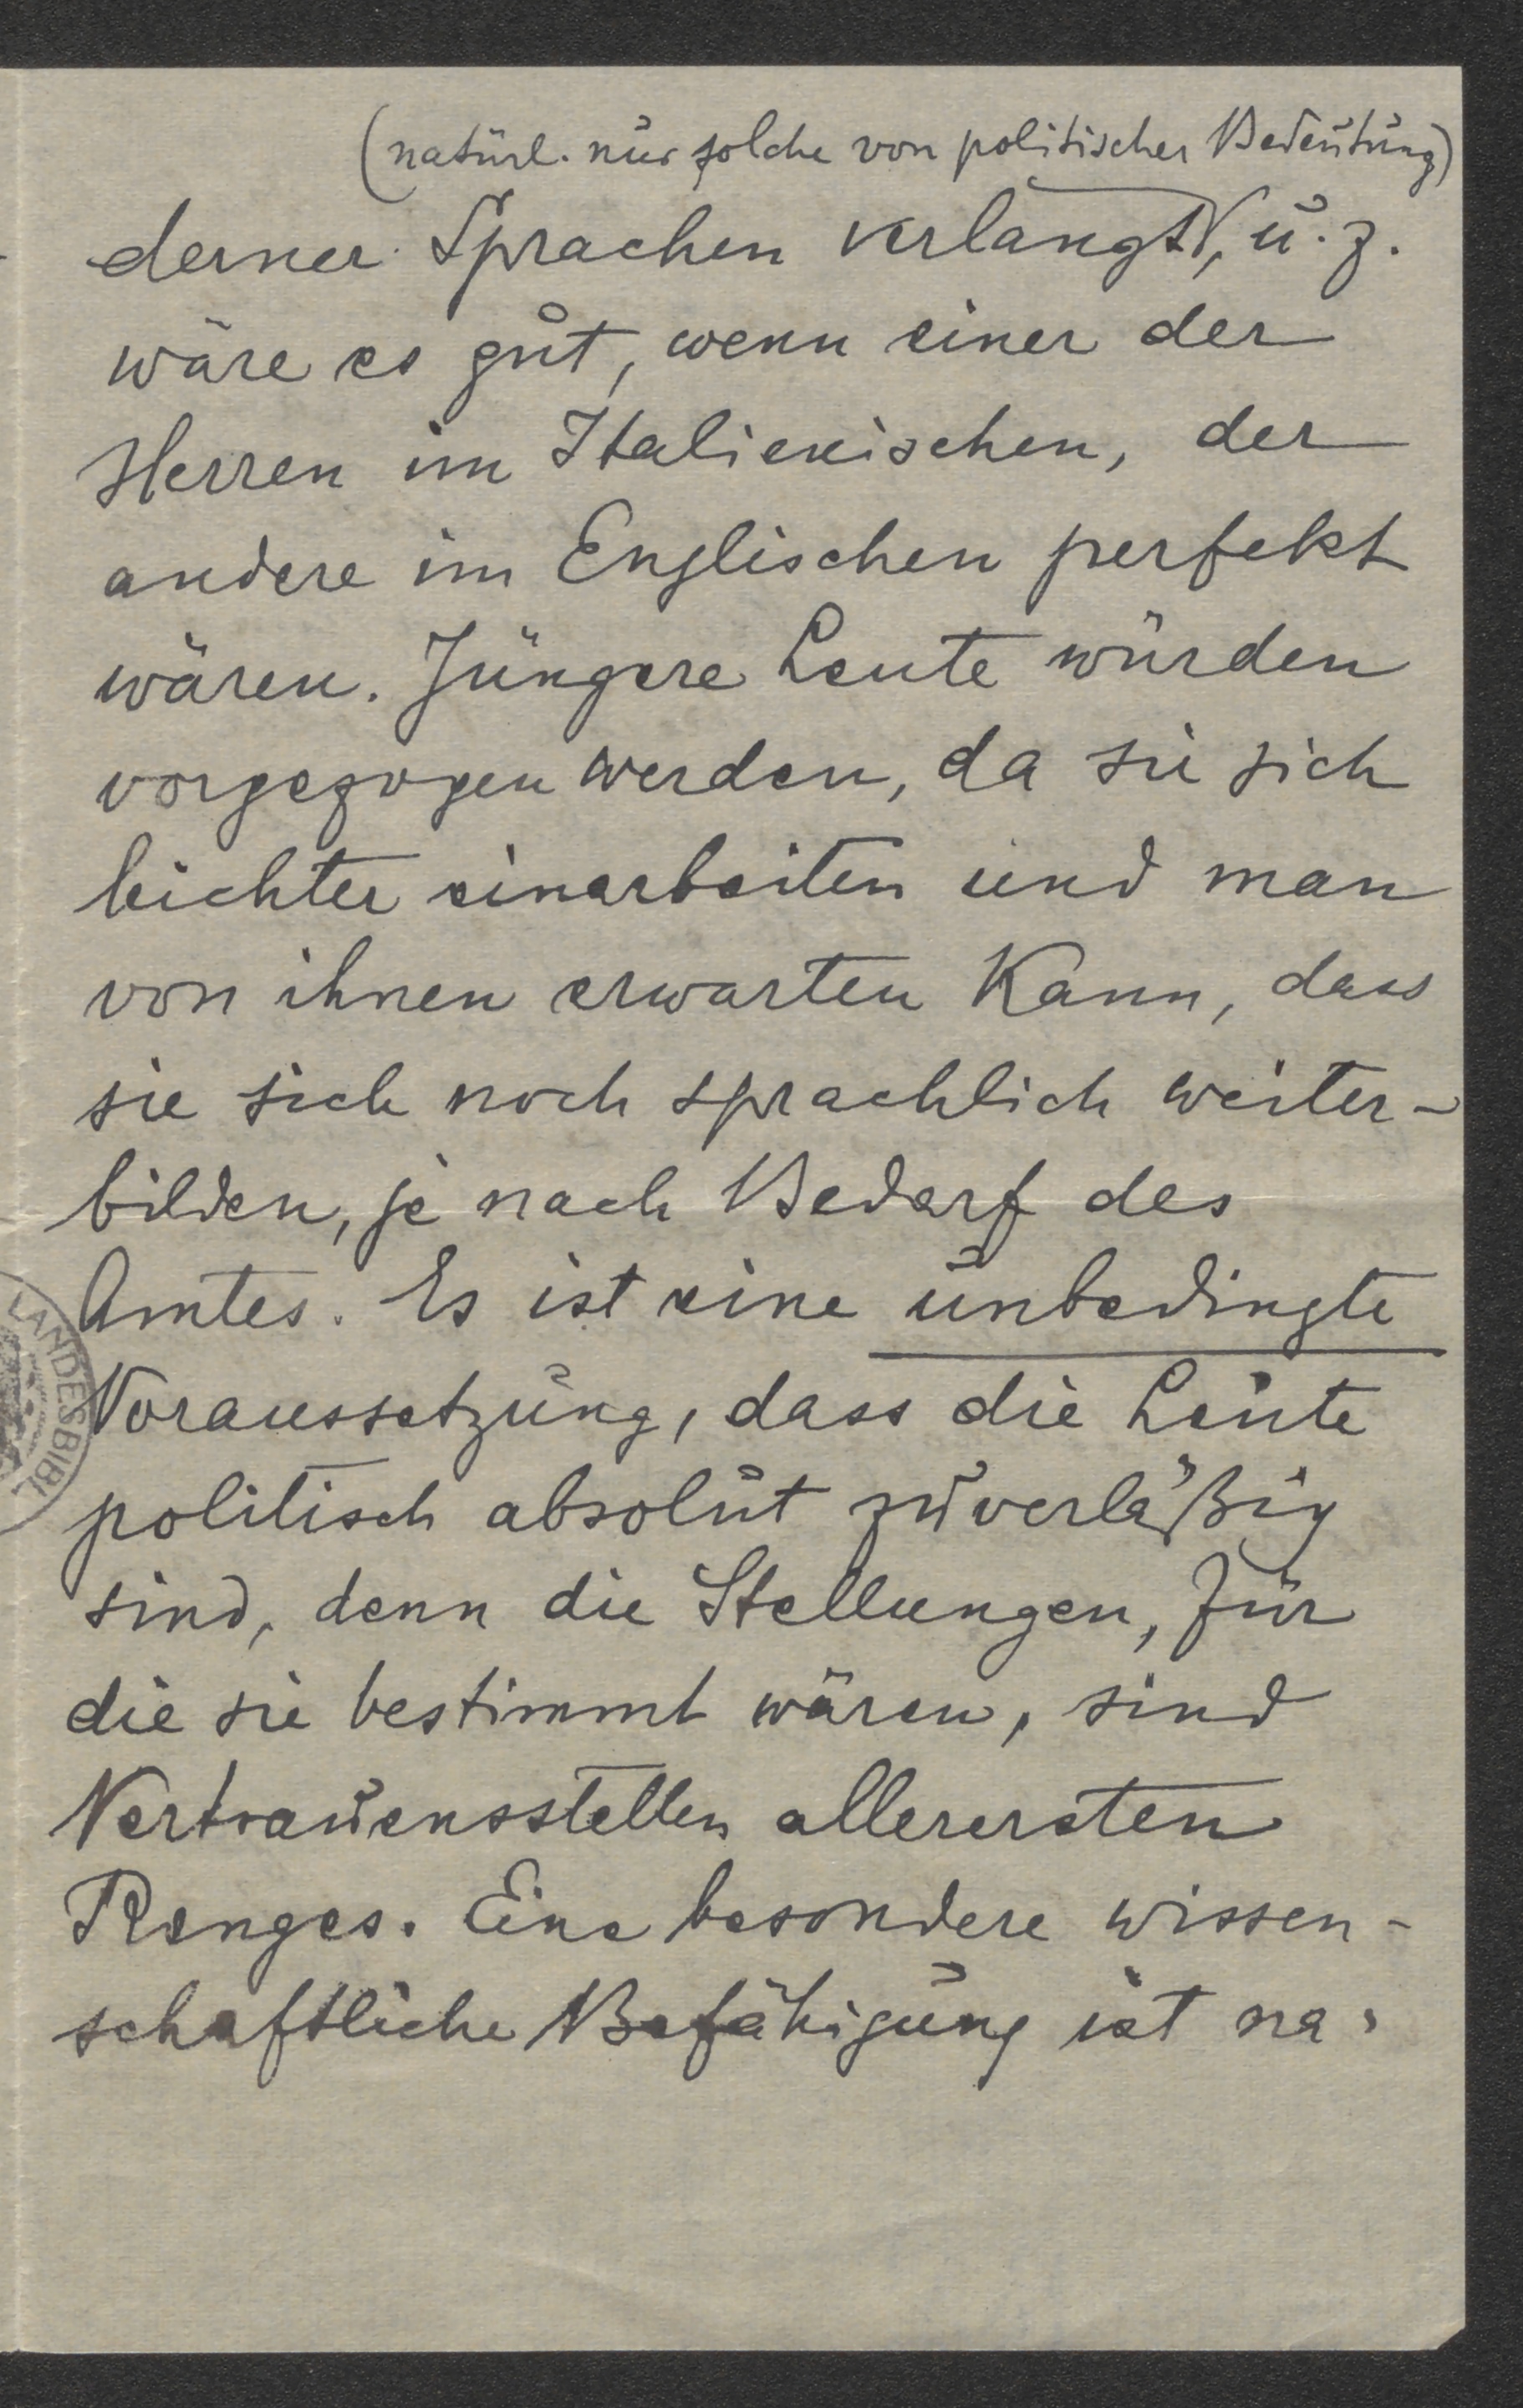 (natürl. nur solche von politischer Bedeutung)
derner Sprachen verlangt, u. z.
wäre es gut, wenn einer der
Herren im Italienischen, der
andere im Englischen perfekt
wären. Jüngere Leute würden
vorgezogen werden, da sie sich
leichter einarbeiten und man
von ihnen erwarten kann, dass
sie sich noch sprachlich weiter-
bilden, je nach Bedarf des
Amtes. Es ist eine unbedingte
Voraussetzung, dass die Leute
politisch absolut zuverläßig
sind, denn die Stellungen, für
die sie bestimmt wären, sind
Vertrauensstellen allerersten
Ranges. Eine besondere wissen-
schaftliche Befähigung ist na-
LANDESBIBL